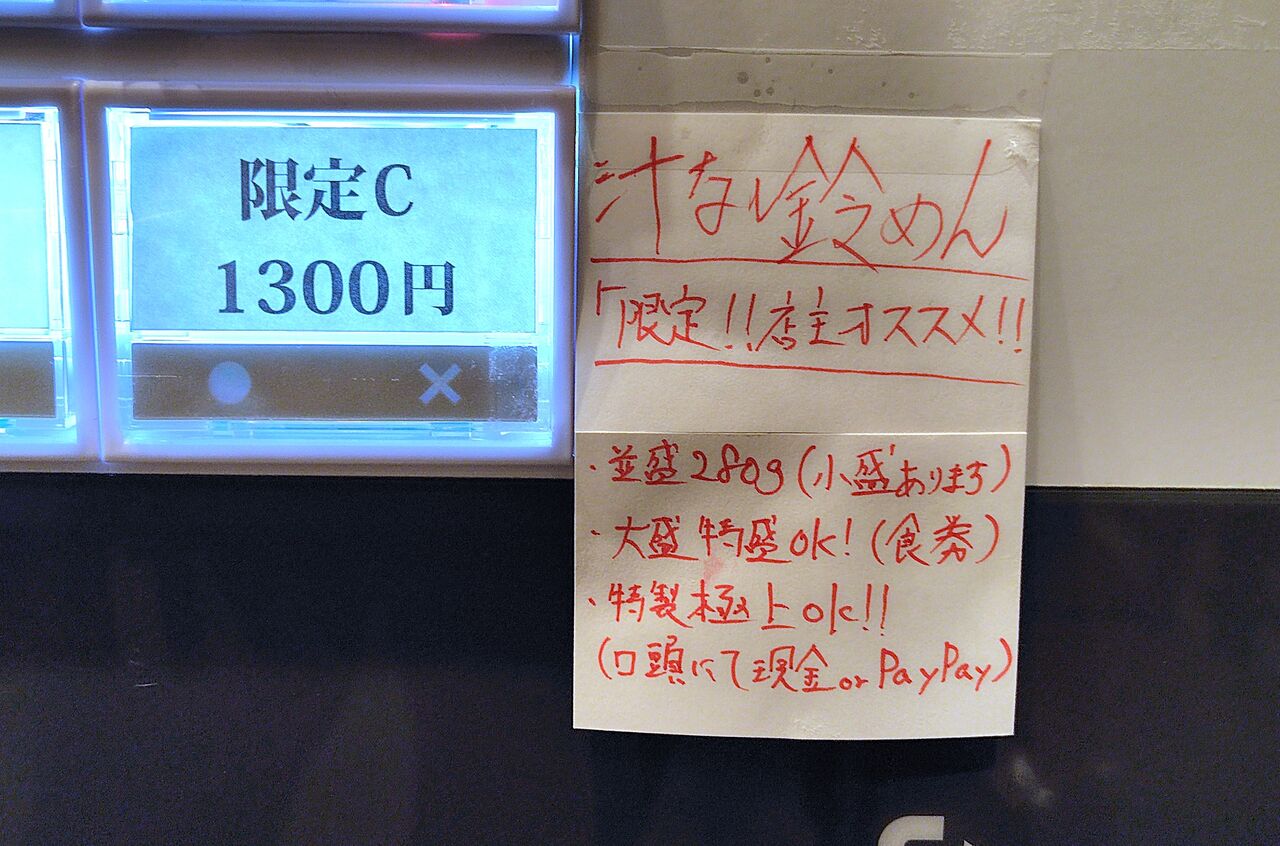 限定C
1300円
汁なし鈴めん
「限定!!店主オススメ!!
・並盛280g(小盛あります)
・大盛特盛ok!(食券)
・特製極上ok!!
(口頭にて現金or PayPay)